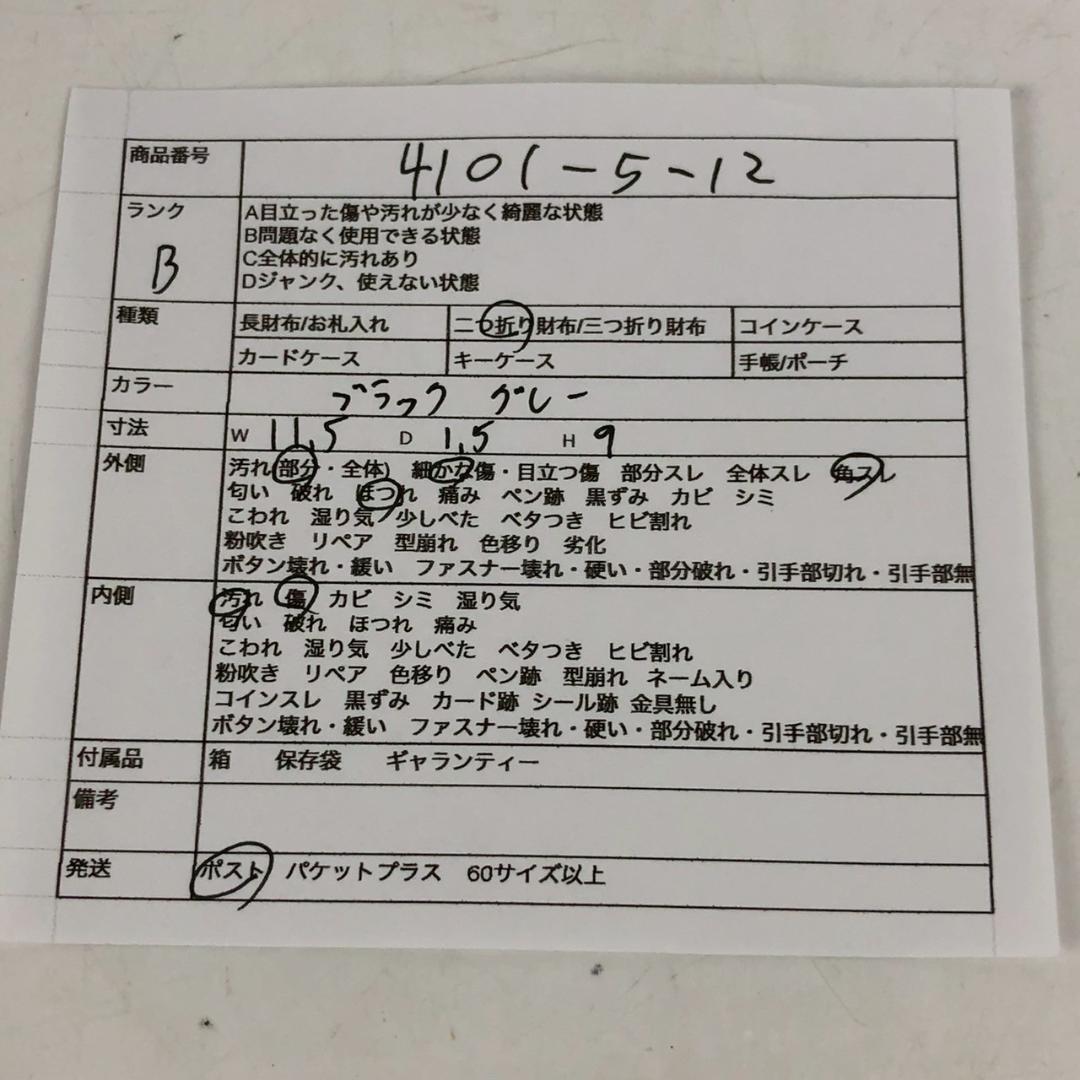 商品番号 4101-5-12
ランク B
A目立った傷や汚れが少なく綺麗な状態
B問題なく使用できる状態
C全体的に汚れあり
Dジャンク、使えない状態
種類 長財布/お札入れ 二つ折り財布/三つ折り財布 コインケース
カードケース キーケース 手帳/ポーチ
カラー ブラック グレー
寸法 W 11.5 D 1.5 H 9
外側 汚れ(部分・全体) 細かな傷・目立つ傷 部分スレ 全体スレ 角スレ
匂い 破れ ほつれ 痛み ペン跡 黒ずみ カビ シミ
こわれ 湿り気 少しべた ベタつき ヒビ割れ
粉吹き リペア 型崩れ 色移り 劣化
ボタン壊れ・緩い ファスナー壊れ・硬い・部分破れ・引手部切れ・引手部無
内側 汚れ 傷 カビ シミ 湿り気
匂い 破れ ほつれ 痛み
こわれ 湿り気 少しべた ベタつき ヒビ割れ
粉吹き リペア 色移り ペン跡 型崩れ ネーム入り
コインスレ 黒ずみ カード跡 シール跡 金具無し
ボタン壊れ・緩い ファスナー壊れ・硬い・部分破れ・引手部切れ・引手部無
付属品 箱 保存袋 ギャランティー
備考
発送 ポスト パケットプラス 60サイズ以上